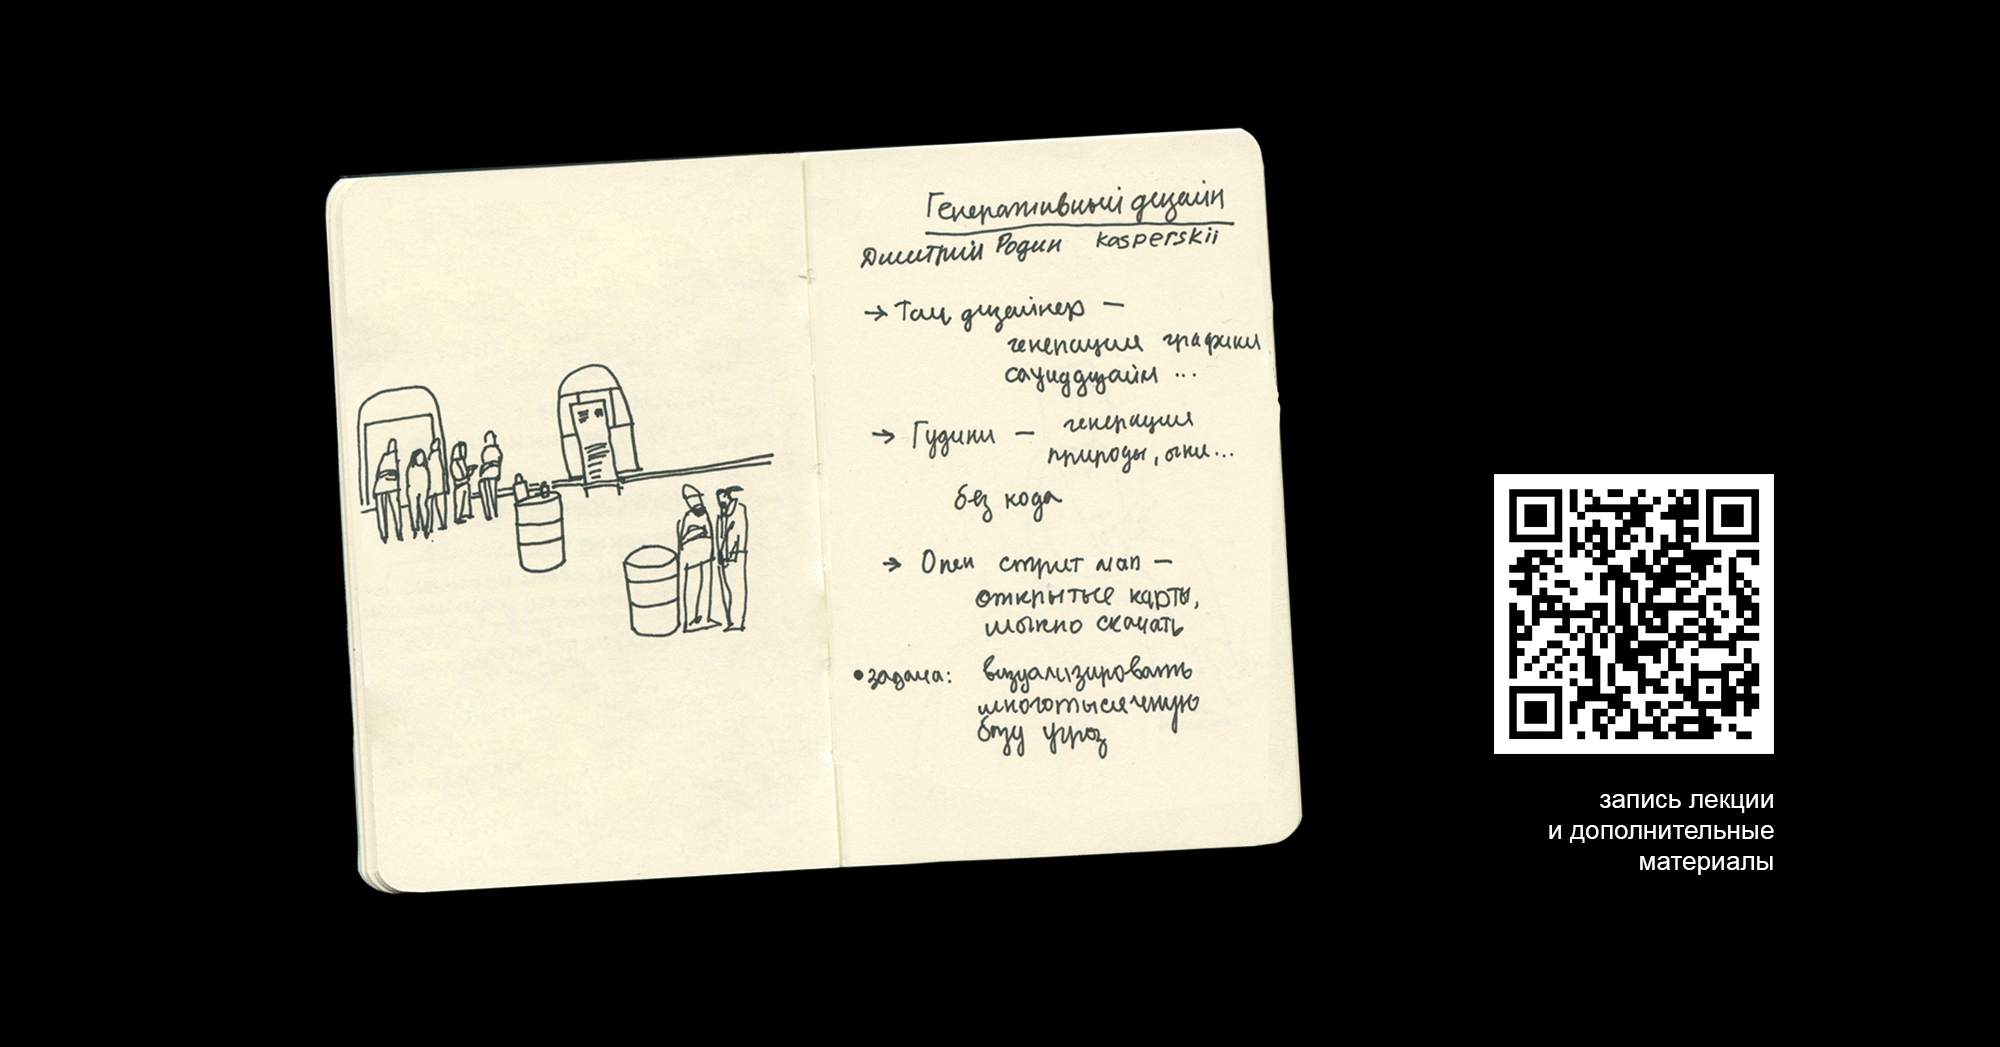 Генеративный дизайн
Дмитрий Родин kasperskii
→ Тач дизайнер —
генерация графики
саунддизайн ...
→ Гудини — генерация
природы, огни...
без кода
→ Опен стрит мап —
открытые карты,
можно скачать
• задача: визуализировать
многотысячную
базу угроз
запись лекции
и дополнительные
материалы